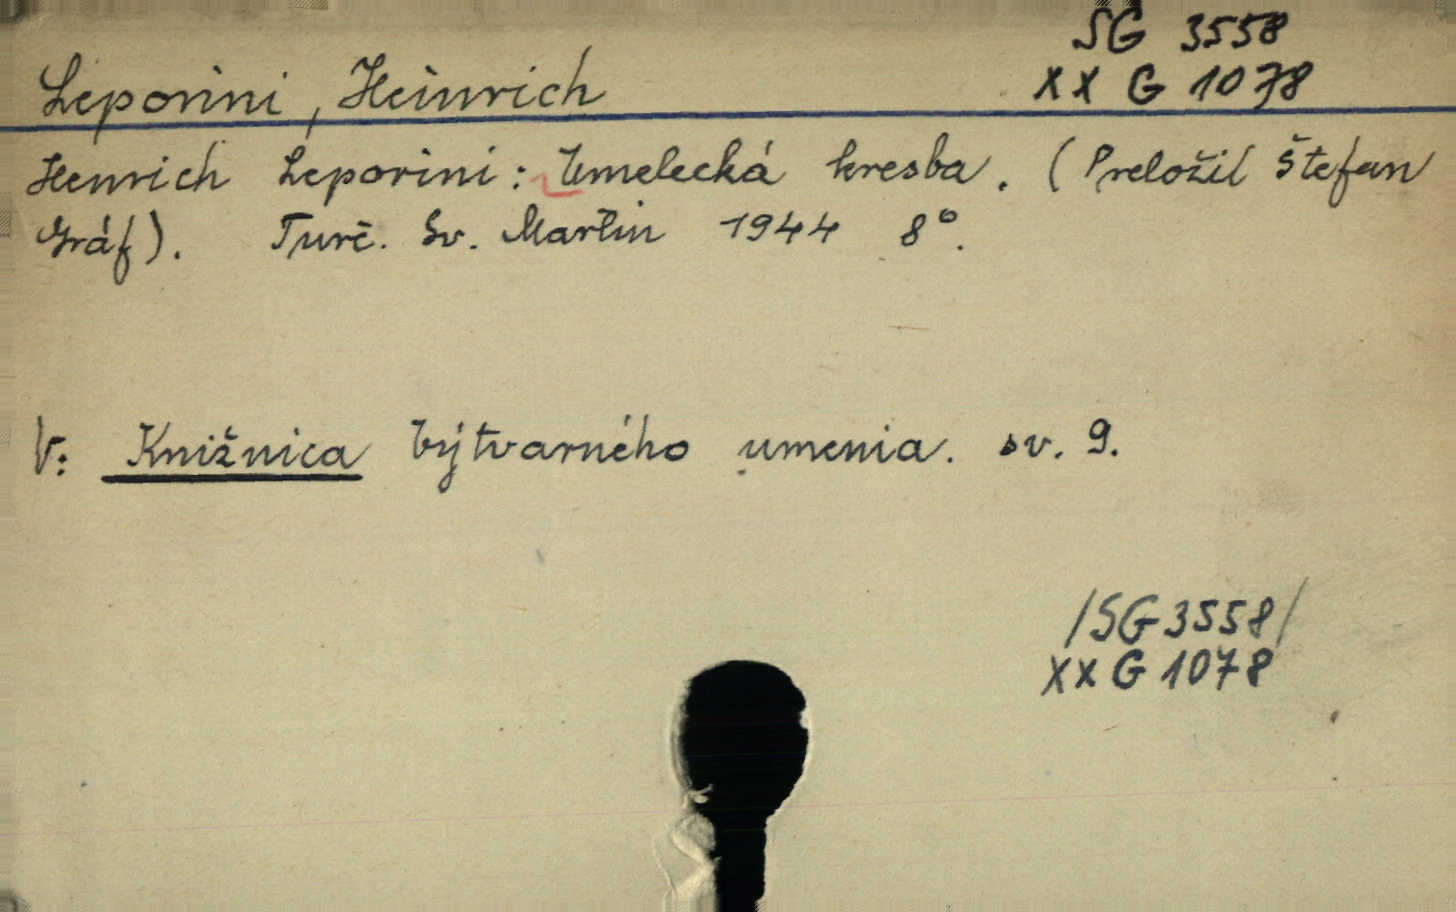 SG 3558
Leporini, Heinrich xx G 1078
Henrich Leporini: Umelecká kresba. (Preložil Štefan
Gráf). Turč. Sv. Martin 1944 8°.
V: Knižnica výtvarného umenia. sv. 9.
/SG 3558/
xx G 1078